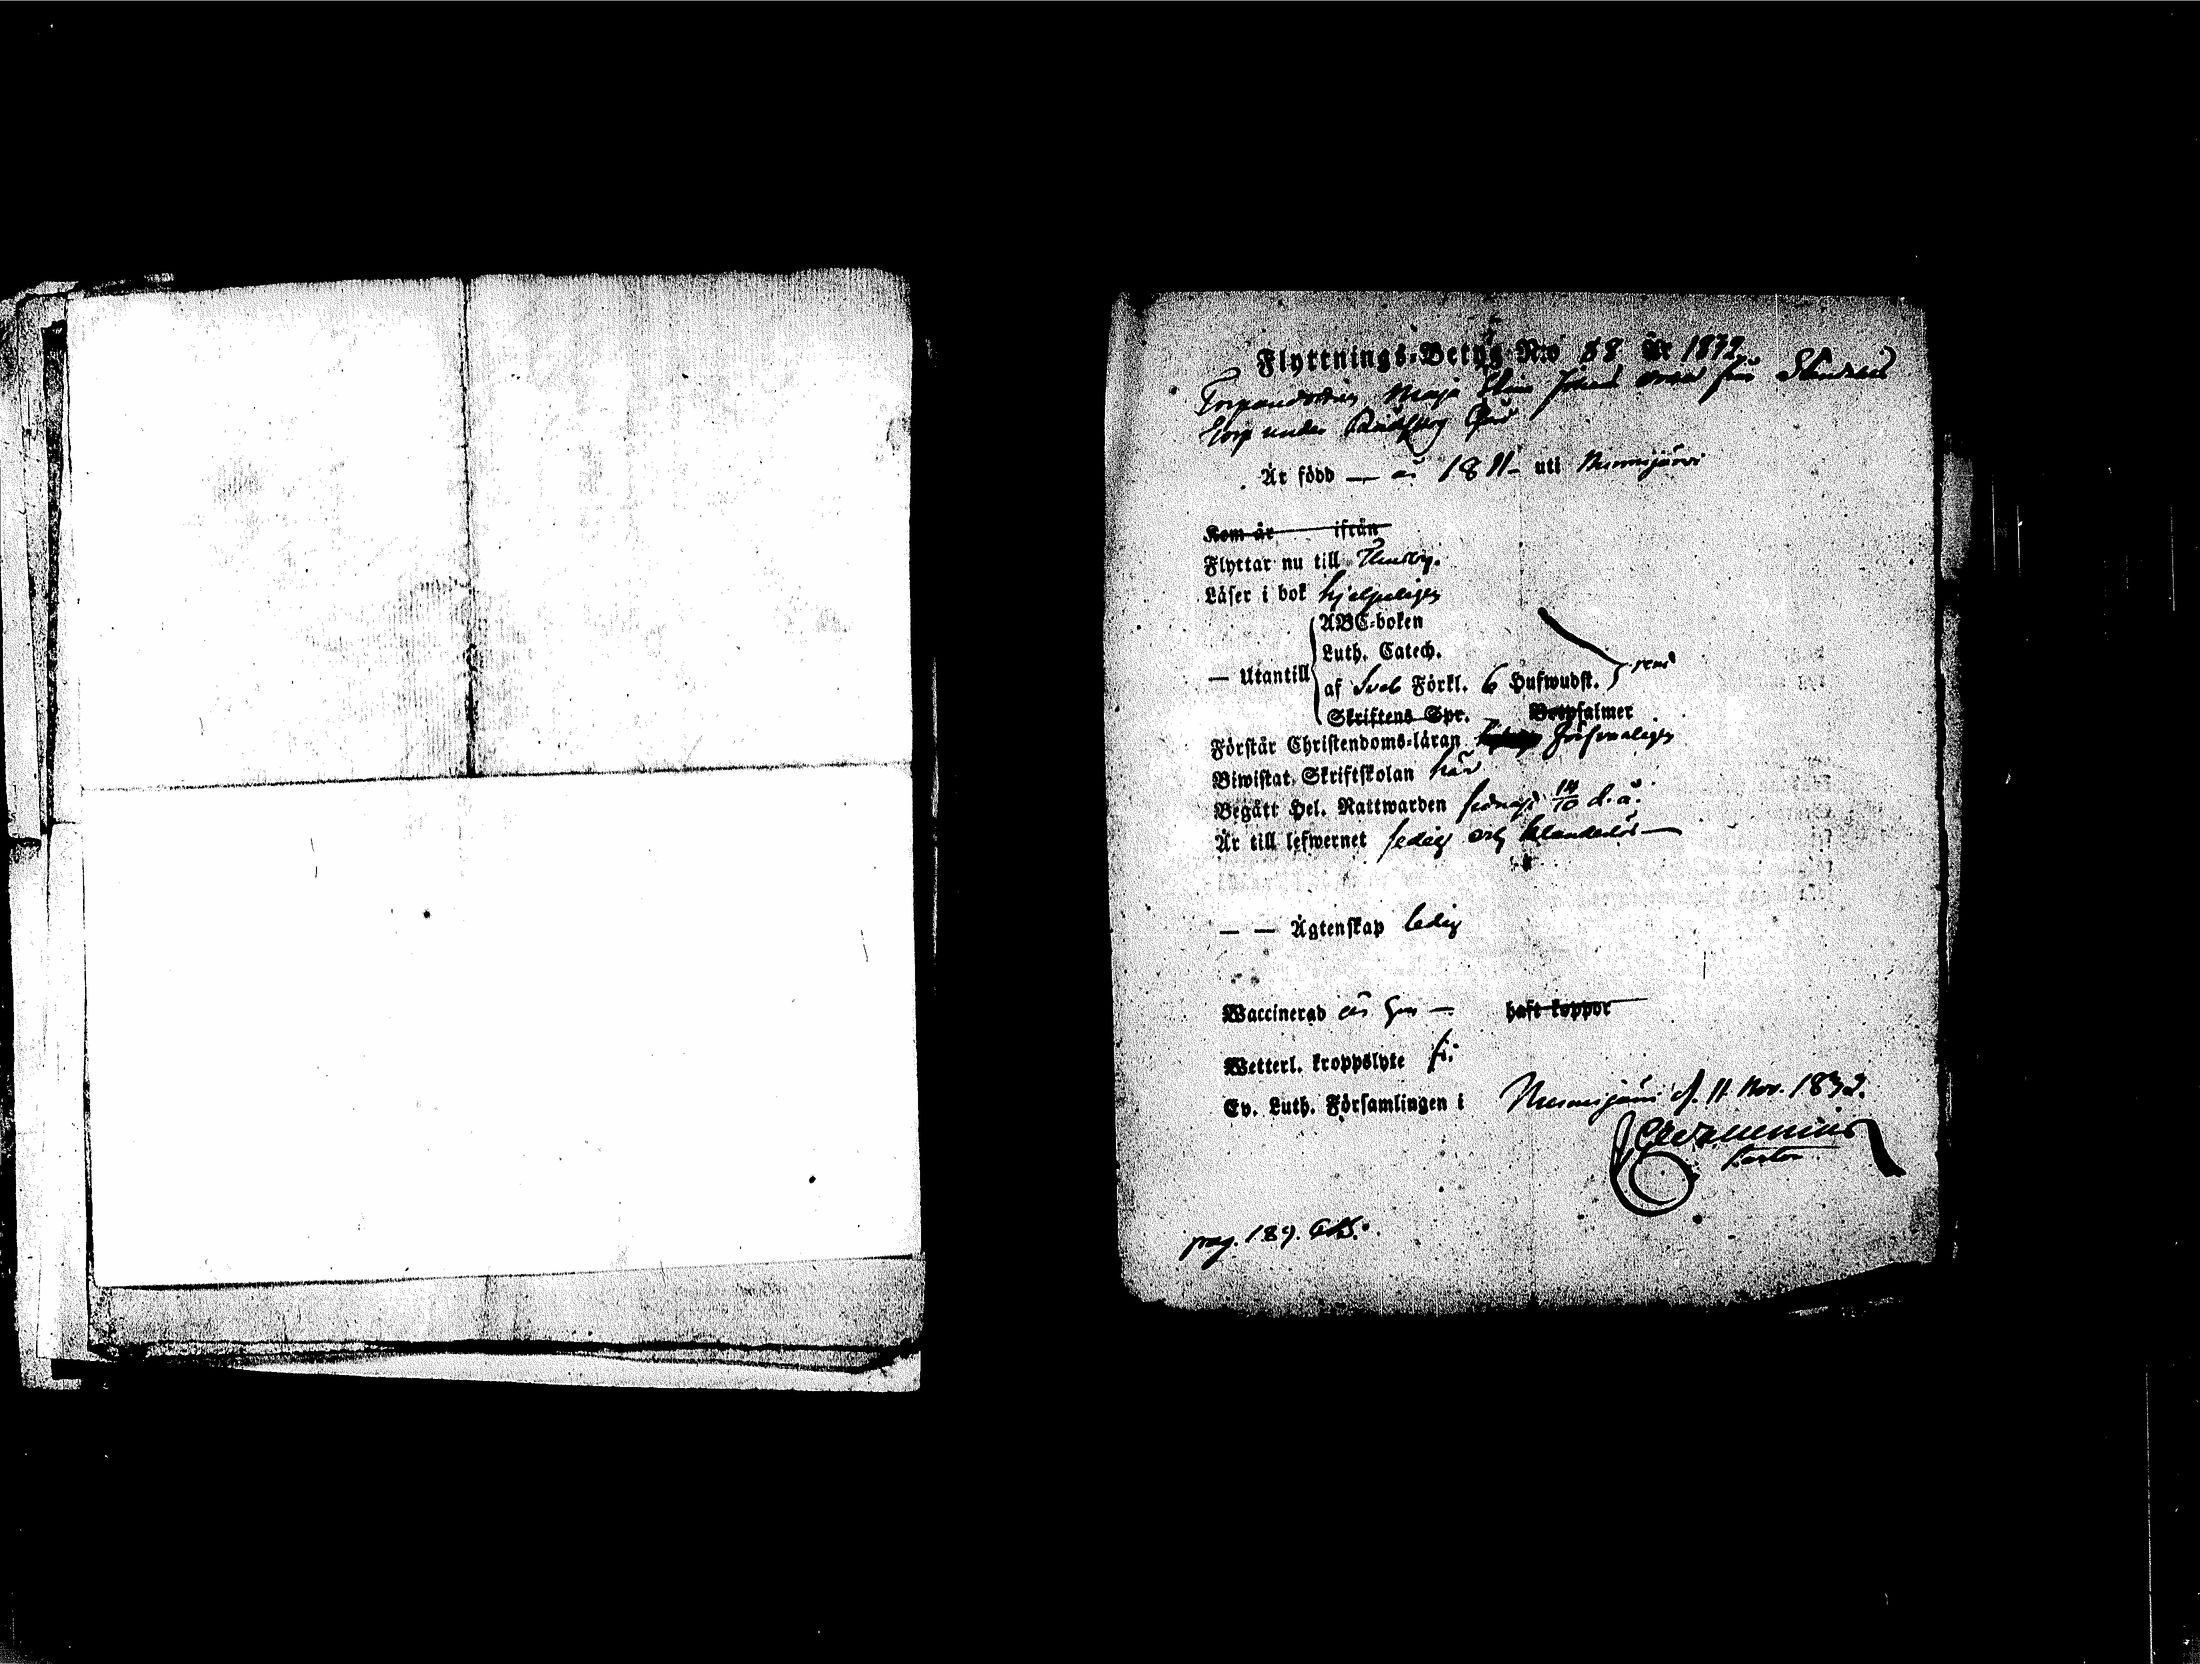 Flyttnings-Betyg N:o 58 år 1832
Maja från
Torp under
Är född — år 1811 uti Nurmijärvi
Kom år ifrån
Flyttar nu till Thusby.
Läser i bok hjelpeligen
ABC-boken
Luth. Catech.
— Utantill af Sveb Förkl. 6 Hufwudst.
Skriftens Spr. Botpsalmer
Förstår Christendoms-läran försvarligen
Biwistat Skriftskolan här
Begått Hel. Nattwarden senast 14/10 d. å.
Är till lefwernet sedig och klanderlös —
— — Ägtenskap ledig
Waccinerad haft koppor
Wetterl. kroppslyte
Ev. Luth. Församlingen i Nurmijärvi d. 11 Nov. 1832.
pag. 189.